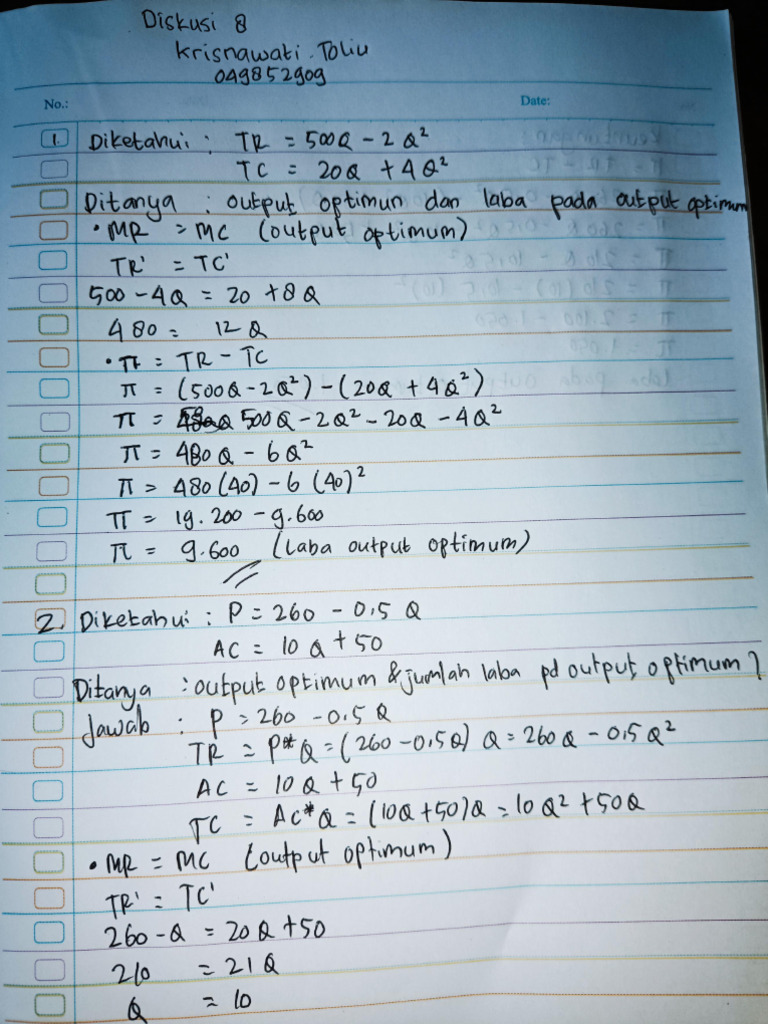 Diskusi 8
Krisnawati Toliu
049852909
No.: Date:
1. Diketahui : TR = 500Q - 2Q²
TC = 20Q + 4Q²
Ditanya : output optimun dan laba pada output optimum
• MR = MC (output optimum)
TR' = TC'
500 - 4Q = 20 + 8Q
480 = 12Q
• π = TR - TC
π = (500Q - 2Q²) - (20Q + 4Q²)
π = 500Q - 2Q² - 20Q - 4Q²
π = 480Q - 6Q²
π = 480(40) - 6(40)²
π = 19.200 - 9.600
π = 9.600 (laba output optimum)
2. Diketahui : P = 260 - 0,5 Q
AC = 10Q + 50
Ditanya : output optimum & jumlah laba pd output optimum?
Jawab : P = 260 - 0,5 Q
TR = P*Q = (260 - 0,5Q) Q = 260Q - 0,5Q²
AC = 10Q + 50
TC = AC*Q = (10Q + 50)Q = 10Q² + 50Q
• MR = MC (output optimum)
TR' = TC'
260 - Q = 20Q + 50
210 = 21Q
Q = 10